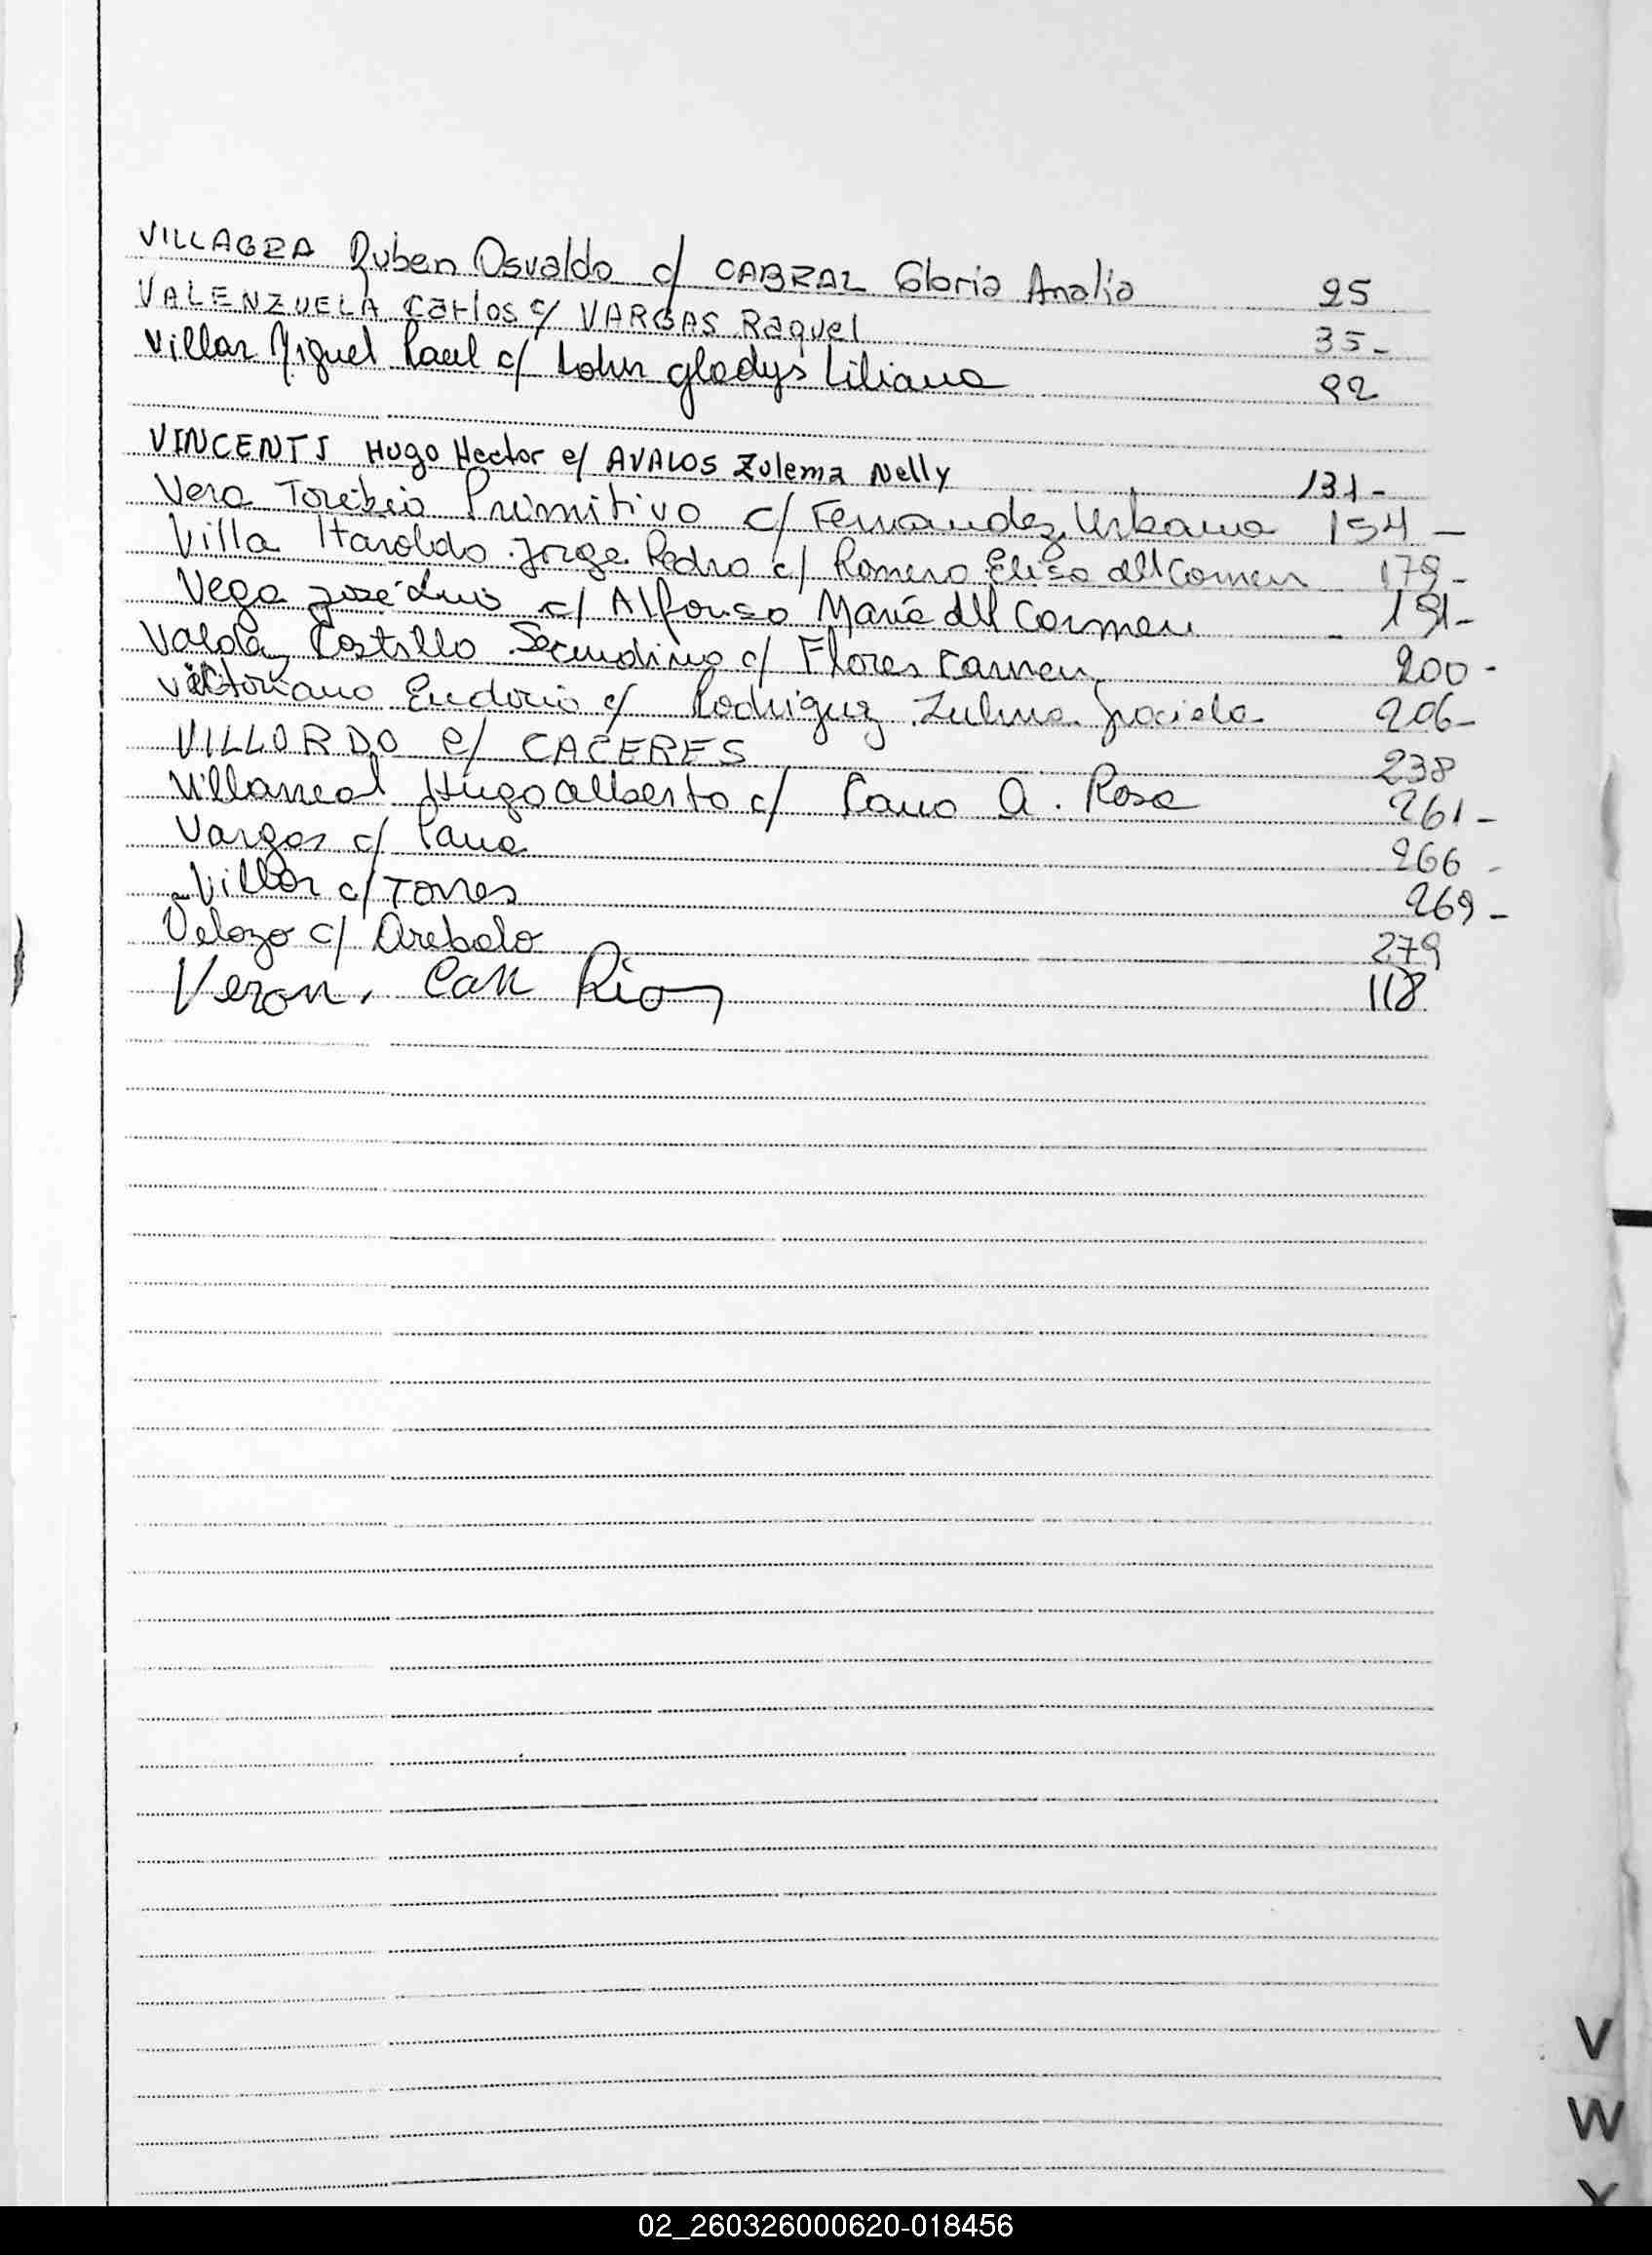 VILLAGRA Ruben Osvaldo c/ CABRAL Gloria Analia 25
VALENZUELA Carlos c/ VARGAS Raquel 35-
Villar Miguel Raul c/ Lohn gladys Liliana 92
VINCENTI Hugo Hector c/ AVALOS Zulema Nelly 131-
Vera Toribio Primitivo c/ Fernandez Urbana 154-
Villa Haroldo Jorge Pedro c/ Romero Elisa del Carmen 179-
Vega José Luis c/ Alfonso María del Carmen - 191-
Valdez Castillo Secundino c/ Flores Carmen 200-
Victoriano Eudocio c/ Rodriguez Zulma graciela 206-
VILLORDO c/ CACERES 238
Villarreal Hugo alberto c/ Cano A. Rosa 261-
Vargas c/ 266-
Villar c/ Torres 269-
Velozo c/ Arebalo 279
Veron. Con Rios 118
V
W
X
02_260326000620-018456